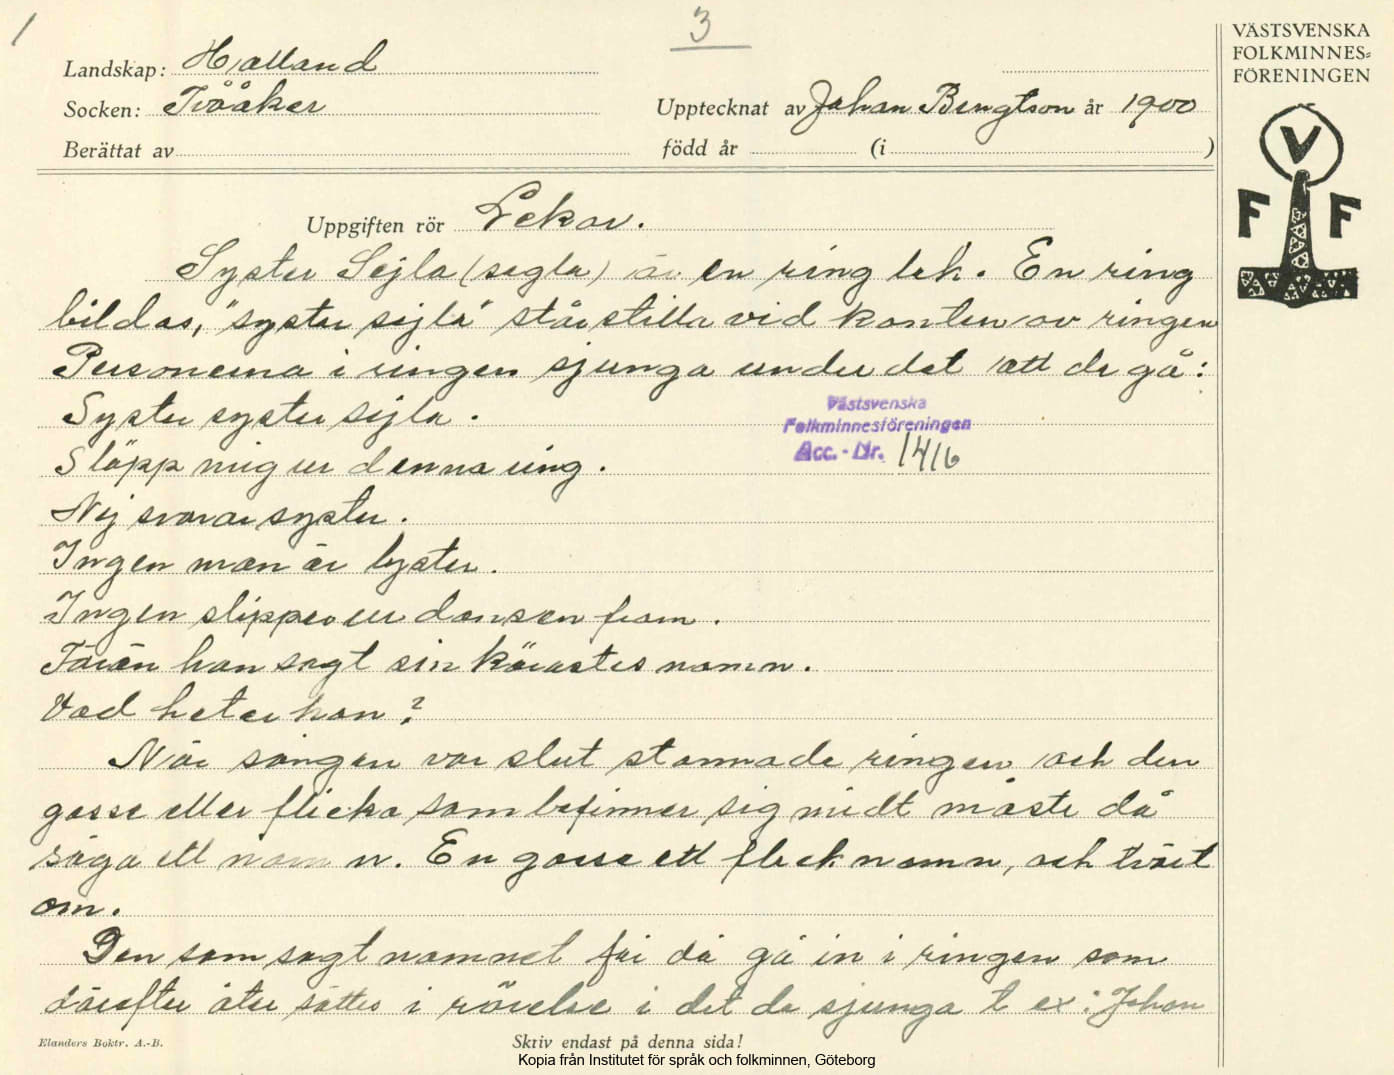 1
3
VÄSTSVENSKA
FOLKMINNES=
FÖRENINGEN
V
F F
Landskap: Halland
Socken: Tvååker
Upptecknat av Johan Bengtson år 1900
Berättat av
född år (i )
Uppgiften rör Lekar.
Syster Sejla (segla) är en ring lek. En ring
bildas, "syster sejla" står stilla vid kanten av ringen
Personerna i ringen sjunga under det att de gå:
Syster syster sejla.
Släpp mig ur denna ring.
Nej svarar syster.
Ingen man är lyster.
Ingen slipper ur dansen fram.
Förän han sagt sin kärastes namn.
Vad heter han?
Västsvenska
Folkminnesföreningen
Acc. - Nr. 1416
När sången var slut stannade ringen och den
gosse eller flicka som befinner sig midt måste då
säga ett namn. En gosse ett flicknamn, och tvärt
om.
Den som sagt namnet får då gå in i ringen som
därefter åter sättes i rörelse i det de sjunga t ex: Johan
Elanders Boktr. A.-B.
Skriv endast på denna sida!
Kopia från Institutet för språk och folkminnen, Göteborg